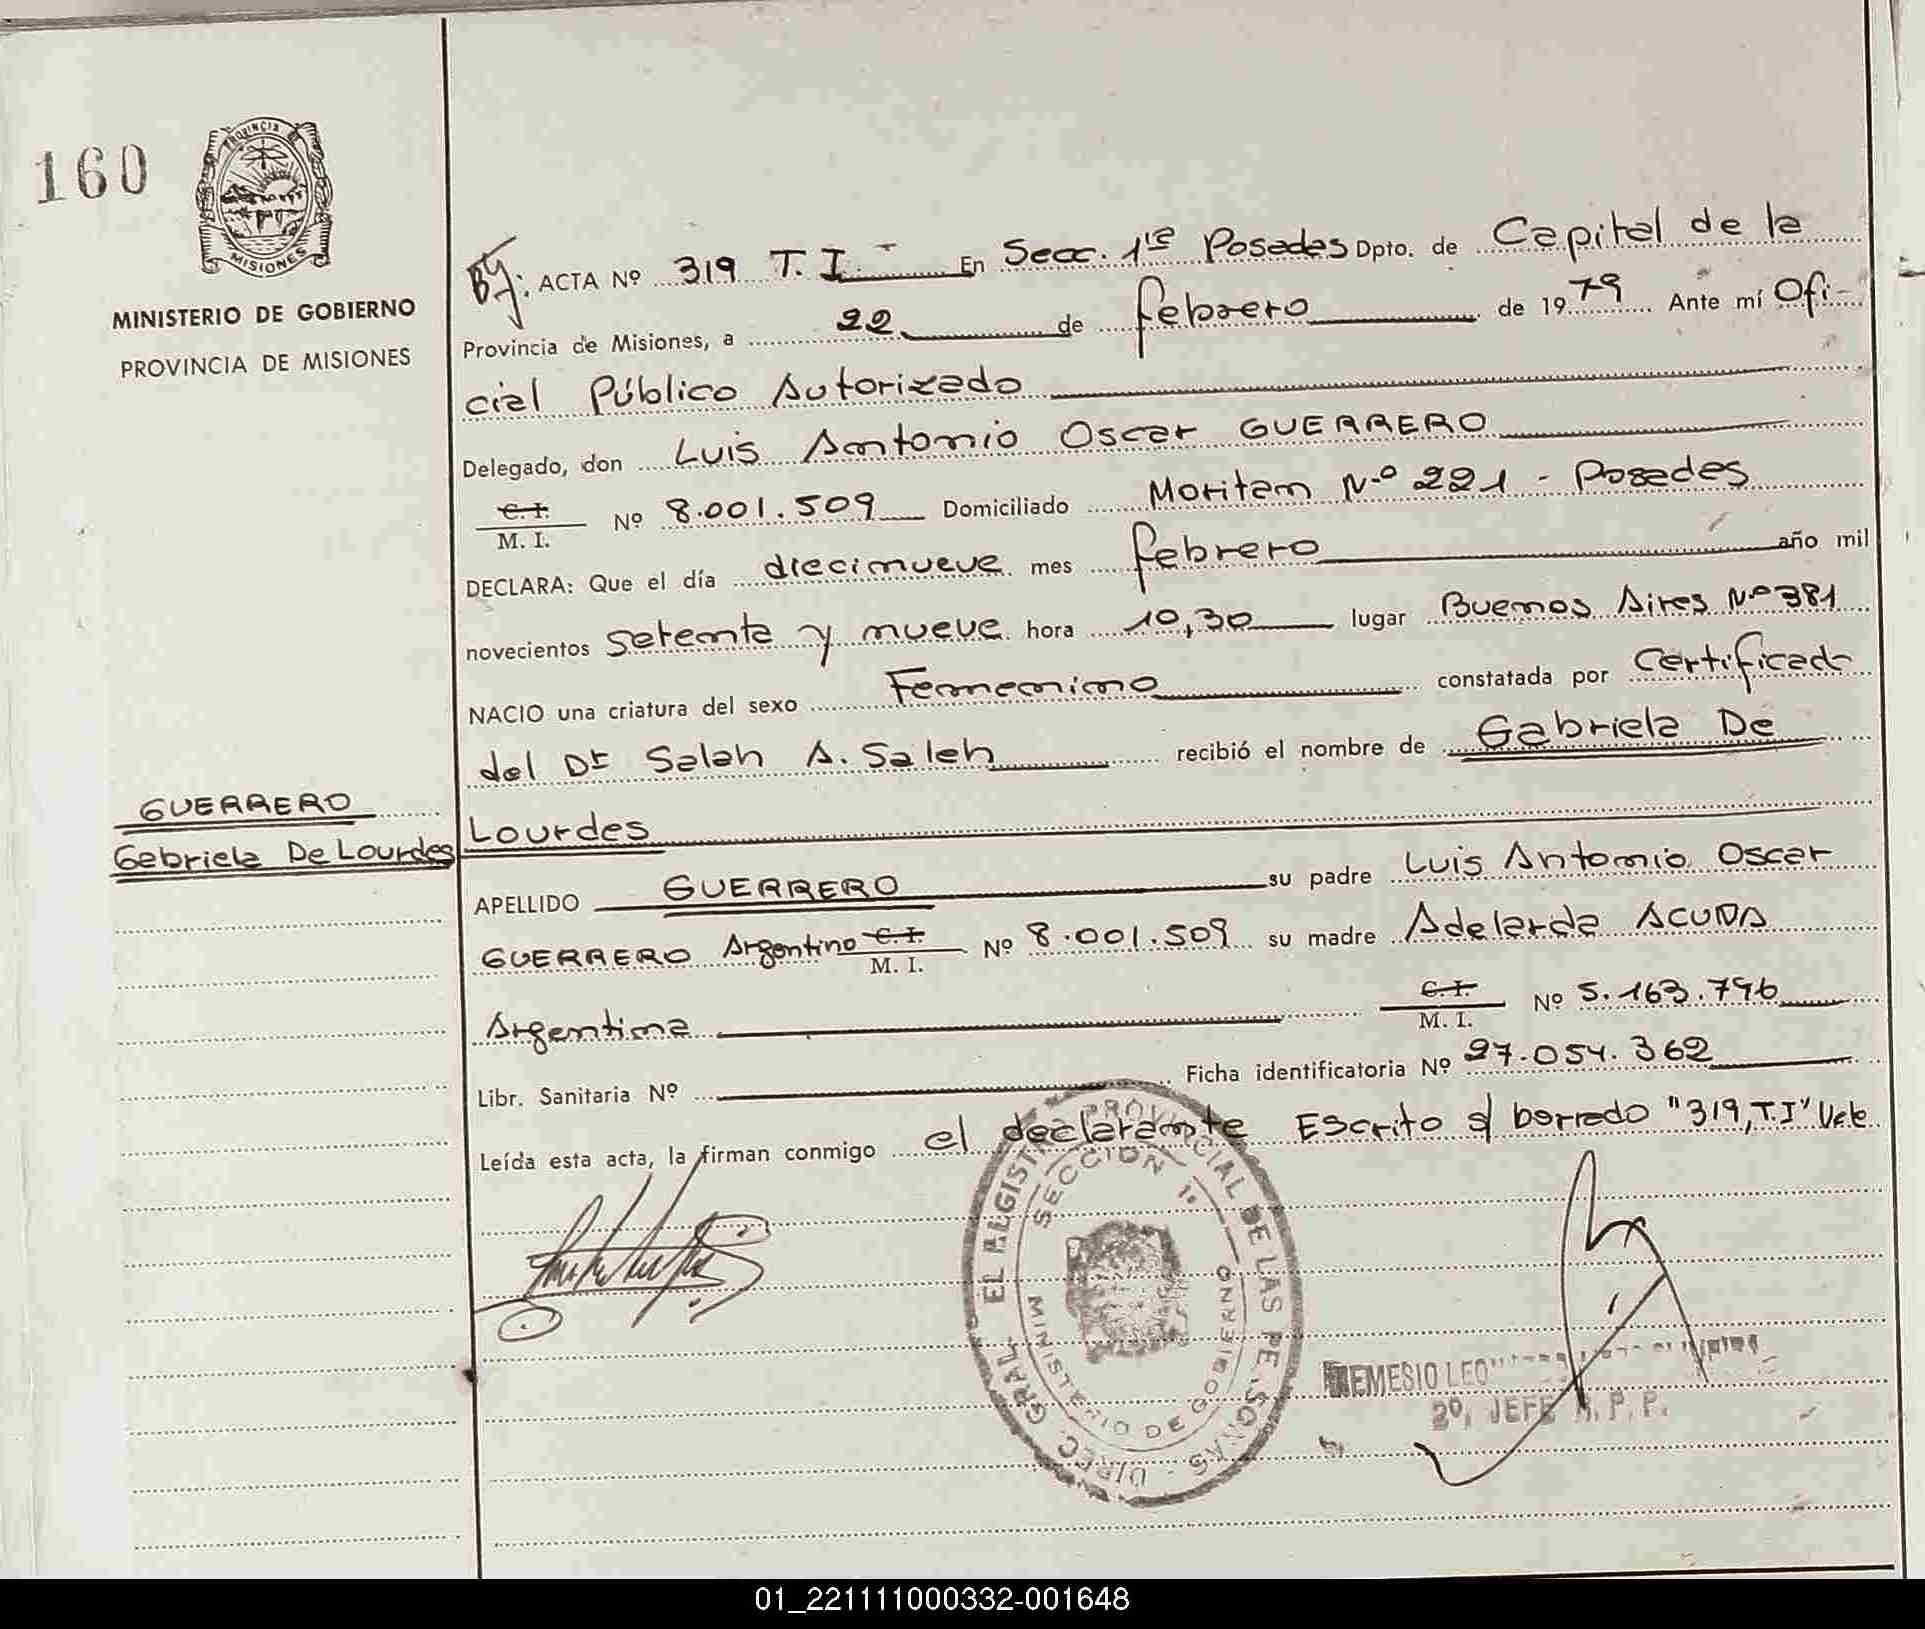 160
PROVINCIA DE
MISIONES
MINISTERIO DE GOBIERNO
PROVINCIA DE MISIONES
ACTA Nº 319 T. I. En Secc. 1ra Posadas Dpto. de Capital de la
Provincia de Misiones, a 22 de febrero de 1979 Ante mí Ofi-
cial Público Autorizado
Delegado, don Luis Antonio Oscar GUERRERO
C. I.
M. I. Nº 8.001.509 Domiciliado Moritan Nº 221 - Posadas
DECLARA: Que el día diecinueve mes febrero año mil
novecientos setenta y nueve hora 10,30 lugar Buenos Aires Nº 381
NACIO una criatura del sexo Femenino constatada por Certificado
del Dr Salah A. Saleh recibió el nombre de Gabriela De
Lourdes
GUERRERO
Gabriela De Lourdes
APELLIDO GUERRERO su padre Luis Antonio Oscar
GUERRERO Argentino C. I.
M. I. Nº 8.001.509 su madre Adelarda ACUÑA
Argentina C. I.
M. I. Nº 5.163.796
Libr. Sanitaria Nº Ficha identificatoria Nº 27.054.362
Leída esta acta, la firman conmigo el declarante Escrito s/ borrado "319, T.I" Vale
DIREC. GRAL. EL REGISTR PROVINCIAL DE LAS PERSONAS
SECCION 1ª
MINISTERIO DE GOBIERNO
NEMESIO LEO
2º, JEFE R. P. P.
01_221111000332-001648